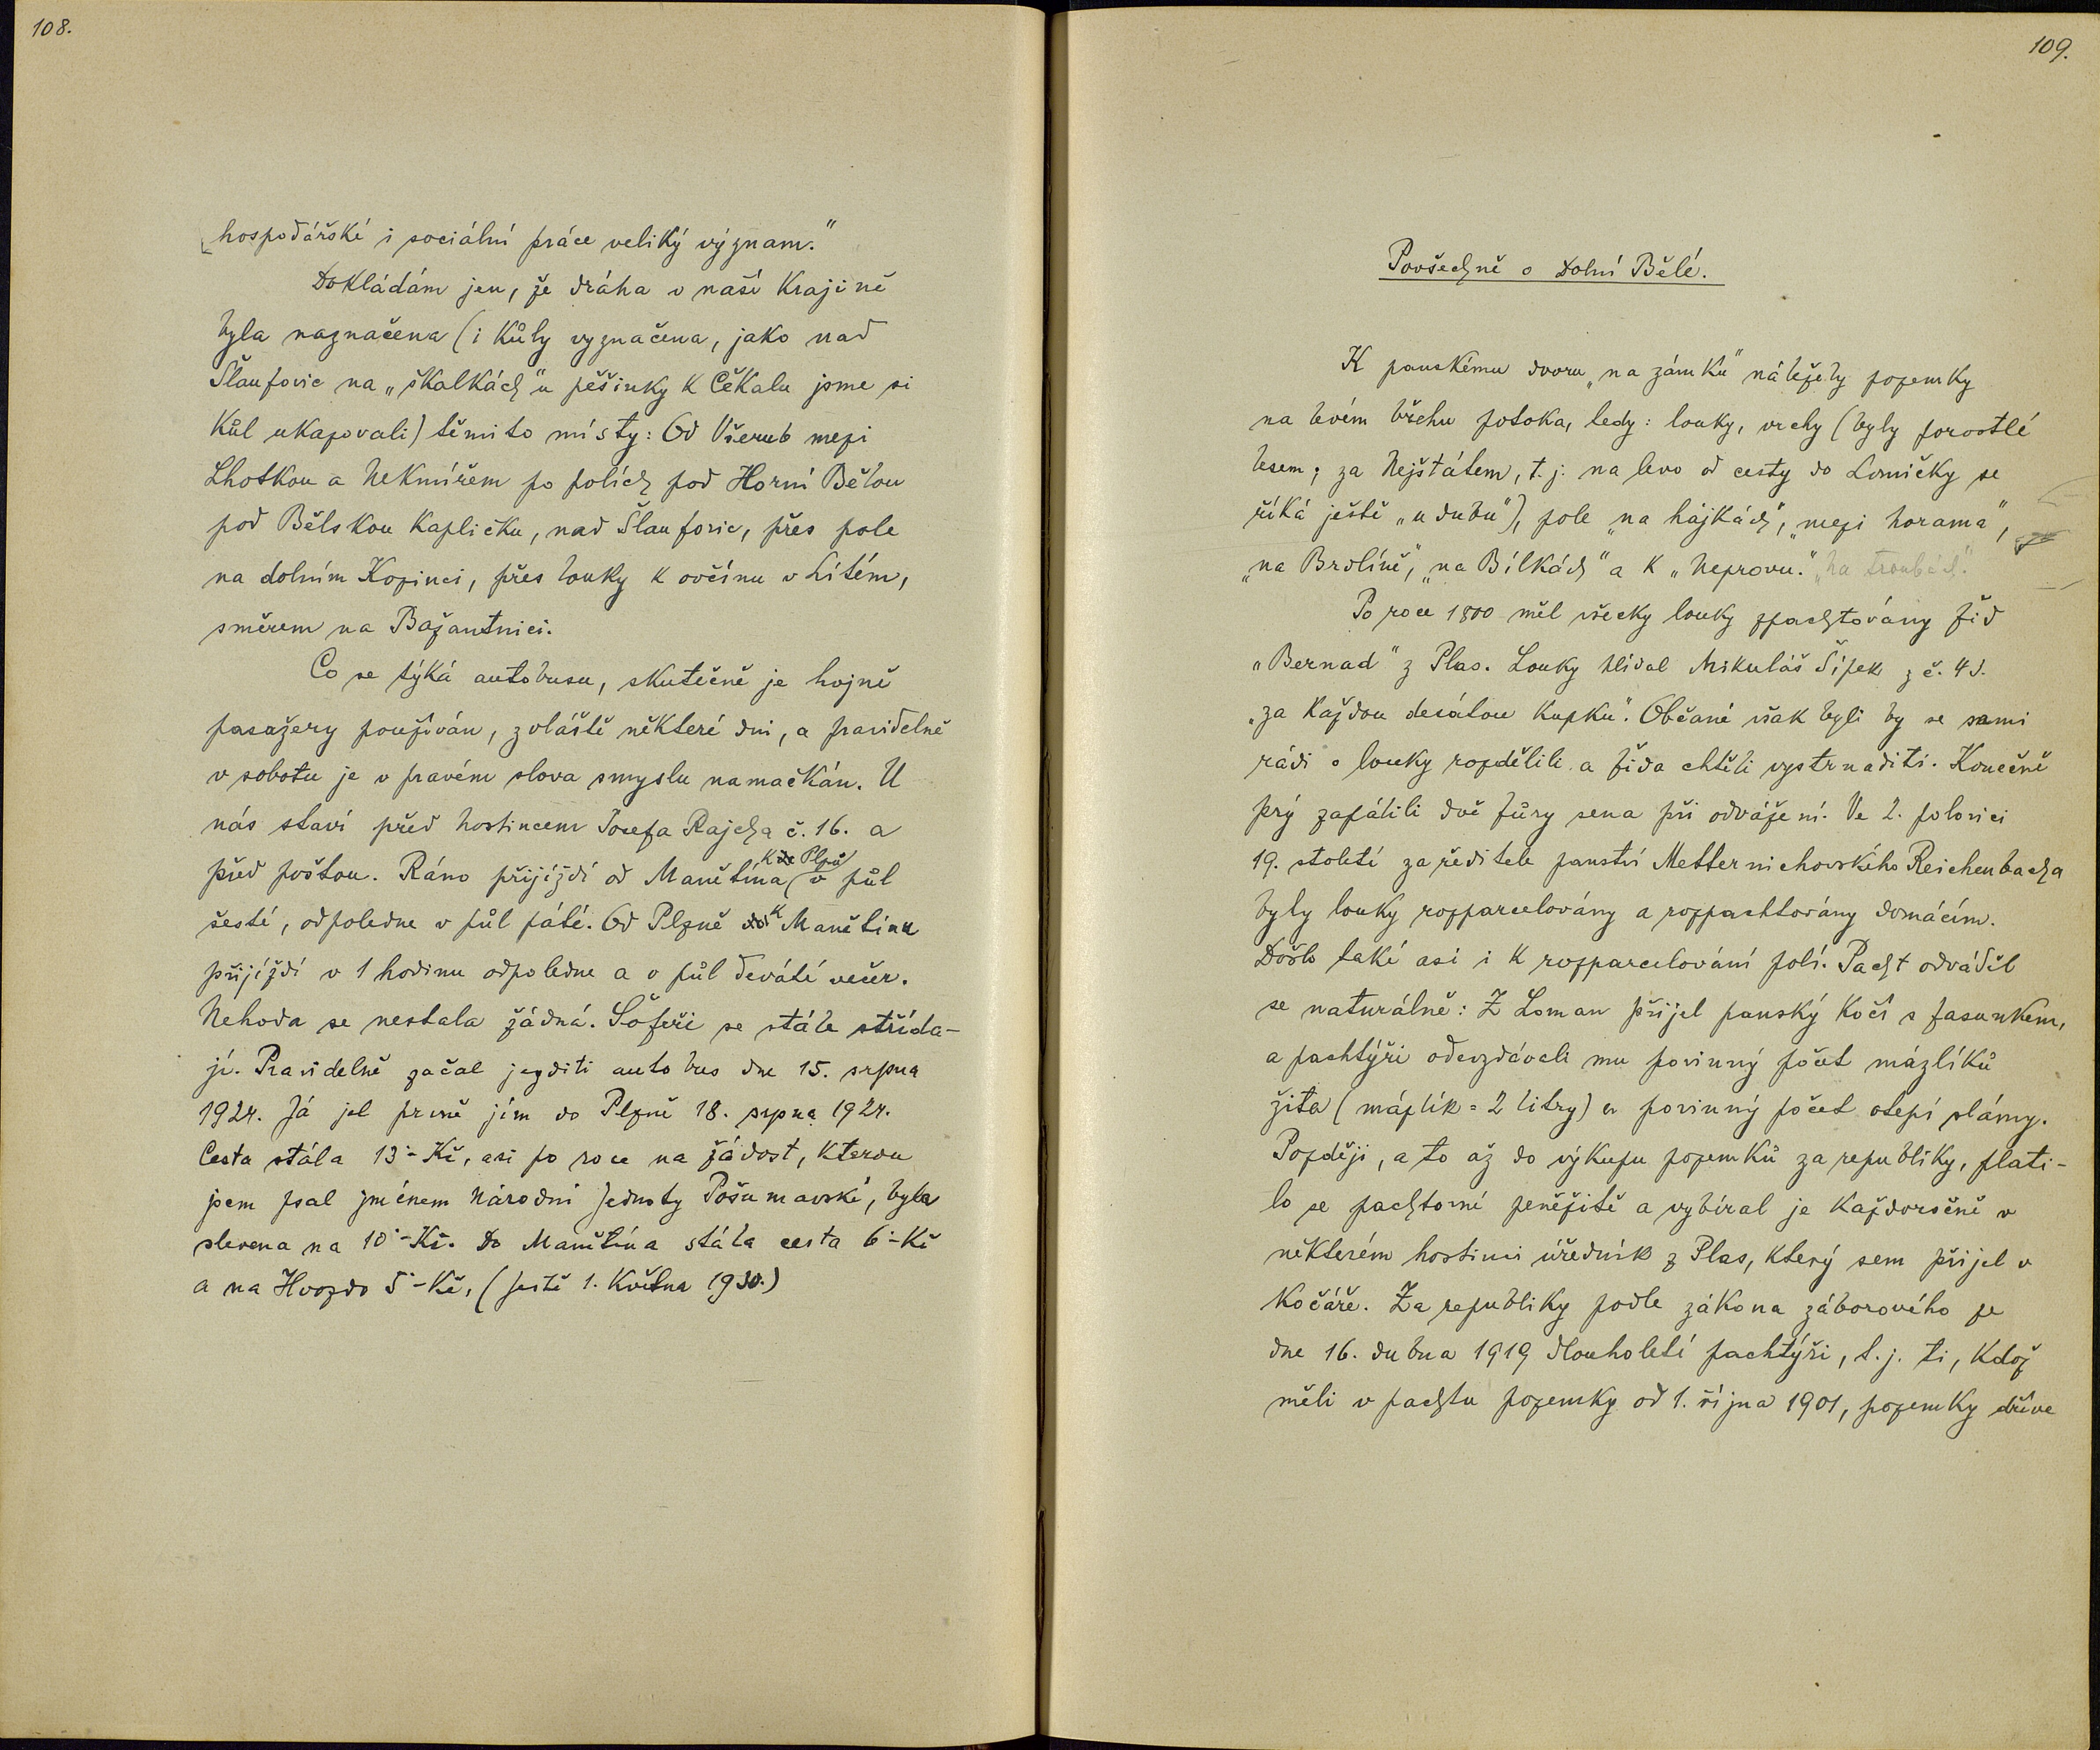 108.
hospodářské i sociální práce veliký význam."
Dokládám jen, že dráha v naší krajině
byla naznačena (i kůly vyznačena, jako nad
Šlaufovic na „škalkách" u pěšinky k Čékalu jsme si
kůl ukazovali) těmito místy: Od Všerub mezi
Lhotkou a Nekmířem po polích pod Horní Bělou
pod Bělskou kapličku, nad Šlaufovic, přes pole
na dolním Kozinci, přes louky k ovčínu v Lítém,
směrem na Bažantnici.
Co se týká autobusu, skutečně je hojně
pasažery používán, zvláště některé dni, a pravidelně
v sobotu je v pravém slova smyslu namačkán. U
nás staví před hostincem Josefa Rajcha č. 16. a
před poštou. Ráno přijíždí od Manětína (k Plzni) v půl
šesté, odpoledne v půl páté. Od Plzně k Manětínu
přijíždí v 1 hodinu odpoledne a v půl deváté večer.
Nehoda se nestala žádná. Šofeři se stále střída-
jí. Pravidelně začal jezditi autobus dne 15. srpna
1924. Já jel prvně jím do Plzně 18. srpna 1924.
Cesta stála 13·- Kč, asi po roce na žádost, kterou
jsem psal jménem Národní Jednoty Pošumavské, byla
slevena na 10·- Kč. Do Manětína stála cesta 6·- Kč
a na Hvozdo 5·- Kč, (ještě 1. května 1930.)
109.
Povšechně o Dolní Bělé.
K panskému dvoru „na zámku" náležely pozemky
na levém břehu potoka, tedy: louky, vrchy (byly porostlé
lesem; za Nejštátem, t. j. na levo od cesty do Lomničky se
říká ještě „u dubu"), pole „na hájkách", „mezi horama",
„na Brdlíně", „na Bílkách" a k „Neprovu." „Na troubách."
Po roce 1800 měl všecky louky zpachtovány žid
„Bernad" z Plas. Louky hlídal Mikuláš Šípek z č. 43.
„za každou desátou kupku". Občané však byli by se sami
rádi o louky rozdělili a žida chtěli vystrnaditi. Konečně
prý zapálili dvě fůry sena při odvážení. Ve 2. polovici
19. století za ředitele panství Metternichovského Reichenbacha
byly louky rozparcelovány a rozpachtovány domácím.
Došlo také asi i k rozparcelování polí. Pacht odváděl
se naturálně: Z Loman přijel panský kočí s fasunkem,
a pachtýři odevzdávali mu povinný počet mázlíků
žita (mázlík = 2 litry) a povinný počet otepí slámy.
Později, a to až do výkupu pozemků za republiky, plati-
lo se pachtovné peněžitě a vybíral je každoročně v
některém hostinci úředník z Plas, který sem přijel v
kočáře. Za republiky podle zákona záborového ze
dne 16. dubna 1919 dlouholetí pachtýři, t. j. ti, kdož
měli v pachtu pozemky od 1. října 1901, pozemky dříve